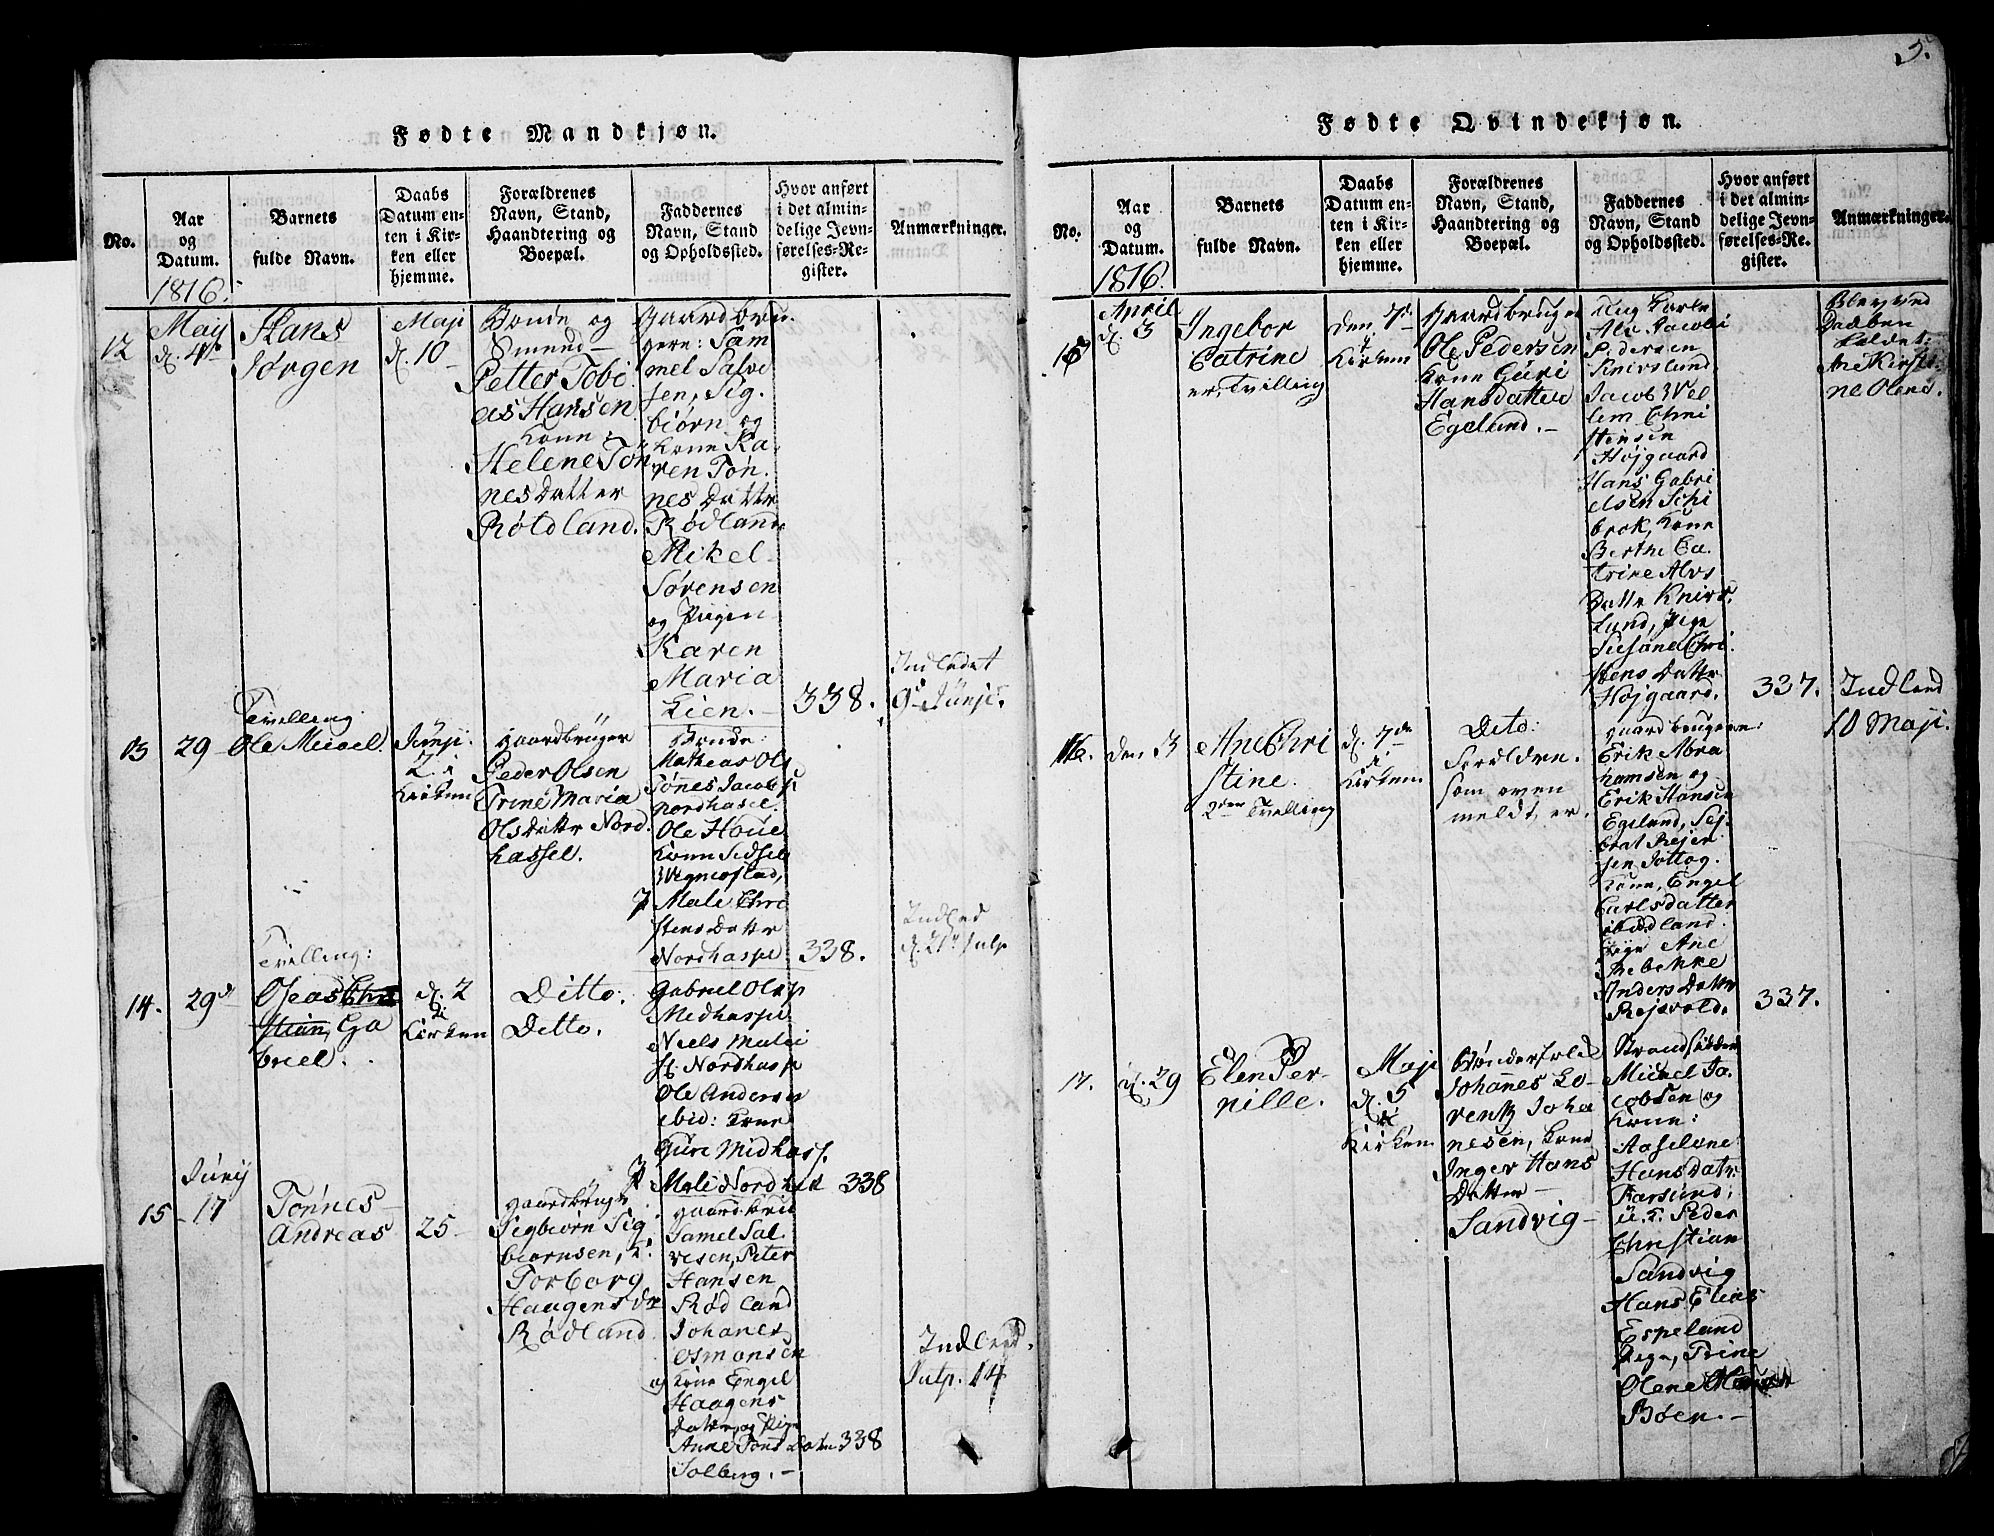 Fødte Mandkjøn.
No.
Aar
og
Datum.
1816.
Barnets
fulde Navn.
Daabs
Datum en-
ten i Kir-
ken eller
hjemme.
Forældrenes
Navn, Stand,
Haandtering og
Boepæl.
Faddernes
Navn, Stand
og Opholdssted.
Hvor anført
i det almin-
delige Jevn-
førelses-Re-
gister.
Anmærkninger.
12
May
d. 4de
Hans
Jørgen
Maji
d. 10
Bonde og
Smend
Petter Tobi
as Hansen
Kone
Helene Tøn
nesdatter
Røldland.
Gaardbru
gere: Sam
mel Salve
sen, Sig
biørn og
Kone Ka-
ren Tøn-
nes Datter
Rødland
Mikel
Sørensen
og Pigen
Karen
Maria
Lien.
338.
Indledet
9de Junji.
13
29
Tvilling
Ole Meivel.
Junji.
2. i
Kirken
Gaardbruger
Peder Olsen
Trine Maria
Olsdatter Nord
hassel.
Bonde:
Matheas Ols
Tønes Jacobs
Nordhasel.
Ole Houe
Kone Sidsel
Vegnestad,
P Male Chri
stens Datter
Nordhassel
338.
Indled
d. 21de Julp
14.
29de
Tvilling:
Oleas Chri
stian, Ga
briel.
d. 2
i
Kirken
Ditto.
Ditto.
Gabriel Olsp
Midhassel
Niels Mulei
H. Nordhassp
Ole Anders
ibid: Kone
Gure Midhass.
P Male Nordhas
338
15
Junij
17
Tønnes
Andreas
25
Gaardbruger
Sigbiørn Sig
biørnsen, K.
Torborg
Haagensdr
Rødland.
Gaardbru
Samel Sal
vesen, Peter
Hansen
Rødland
Johanes
Osmonsen
og Kone Engel
Haagens
Datter, og Pige
Anne Tøns Datr
Solberg.
338
Indled.
Julp. 14
Fødte Qvindekjøn.
5.
No.
Aar
og
Datum.
1816.
Barnets
fulde Navn.
Daabs
Datum en-
ten i Kir-
ken eller
hjemme.
Forældrenes
Navn, Stand,
Haandtering og
Boepæl.
Faddernes
Navn, Stand
og Opholdssted.
Hvor anført
i det almin-
delige Jevn-
førelses-Re-
gister.
Anmærkninger.
15
April
d. 3
Ingebor
Catrine
er Tvilling
den 7de
i
Kirken
Gaardbruger
Ole Pedersen
Kone Guri
Hansdatter
Egelund.
Ung Karle
Alv Jacobi
Pedersen
Knivslund
Jacob Vel
lem Chri
stensen
Højgaard
Hans Gabri
elsen Schi
brok, Kone
Berthe Ca
trine Alvs
Datter Knivs
Lund, Pige
Susane Chri
stens Datter
Højgaard.
337.
Blev ved
Daaben
holdet:
Ane Kirsti-
ne Olens.
Indled
10 Maji.
16.
den 3
Ane Chri
stine.
2den Tvelling
d. 7de
i
Kirken
Dito:
Foreldre
som oven
meldt, er.
Gaardbrugere:
Erik Abra
hamsen og
Erik Hansen
Egelund, Sej
brat Rejer
sen Jottog.
Kone, Engel
Carlsdatter
ibid land.
Pige Ane
Rebekke
Anders Datter
Rejevold.
337.
17.
d. 29
Elen Per-
nille.
Maji
d. 5
i
Kirken
Bønderfolk
Johannes Lo-
rentz Joha
nesen, Kone
Inger Hans
Datter
Sandvig
Strandsidder
Michel Ja-
cobsen og
Kone:
Aaselene
Hansdatr
Farsund;
u. k. Peder
Christian
Sandvig
Hans Elias
Espeland
Pige, Trine
Olene
Bøen.